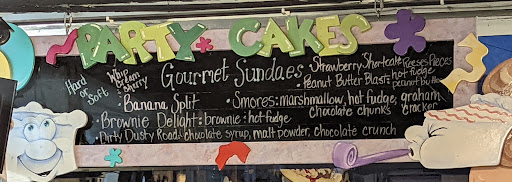 PARTY CAKES
Hard
or
Soft
Whip
cream
cherry
Gourmet Sundaes
Strawberry Shortcake
Reeses Pieces
Peanut Butter Blast: hot fudge
peanut butter
• Banana Split
• Smores: marshmallow, hot fudge, graham
cracker
chocolate chunks
• Brownie Delight: brownie: hot fudge
• Dirty Dusty Road: chocolate syrup, malt powder, chocolate crunch